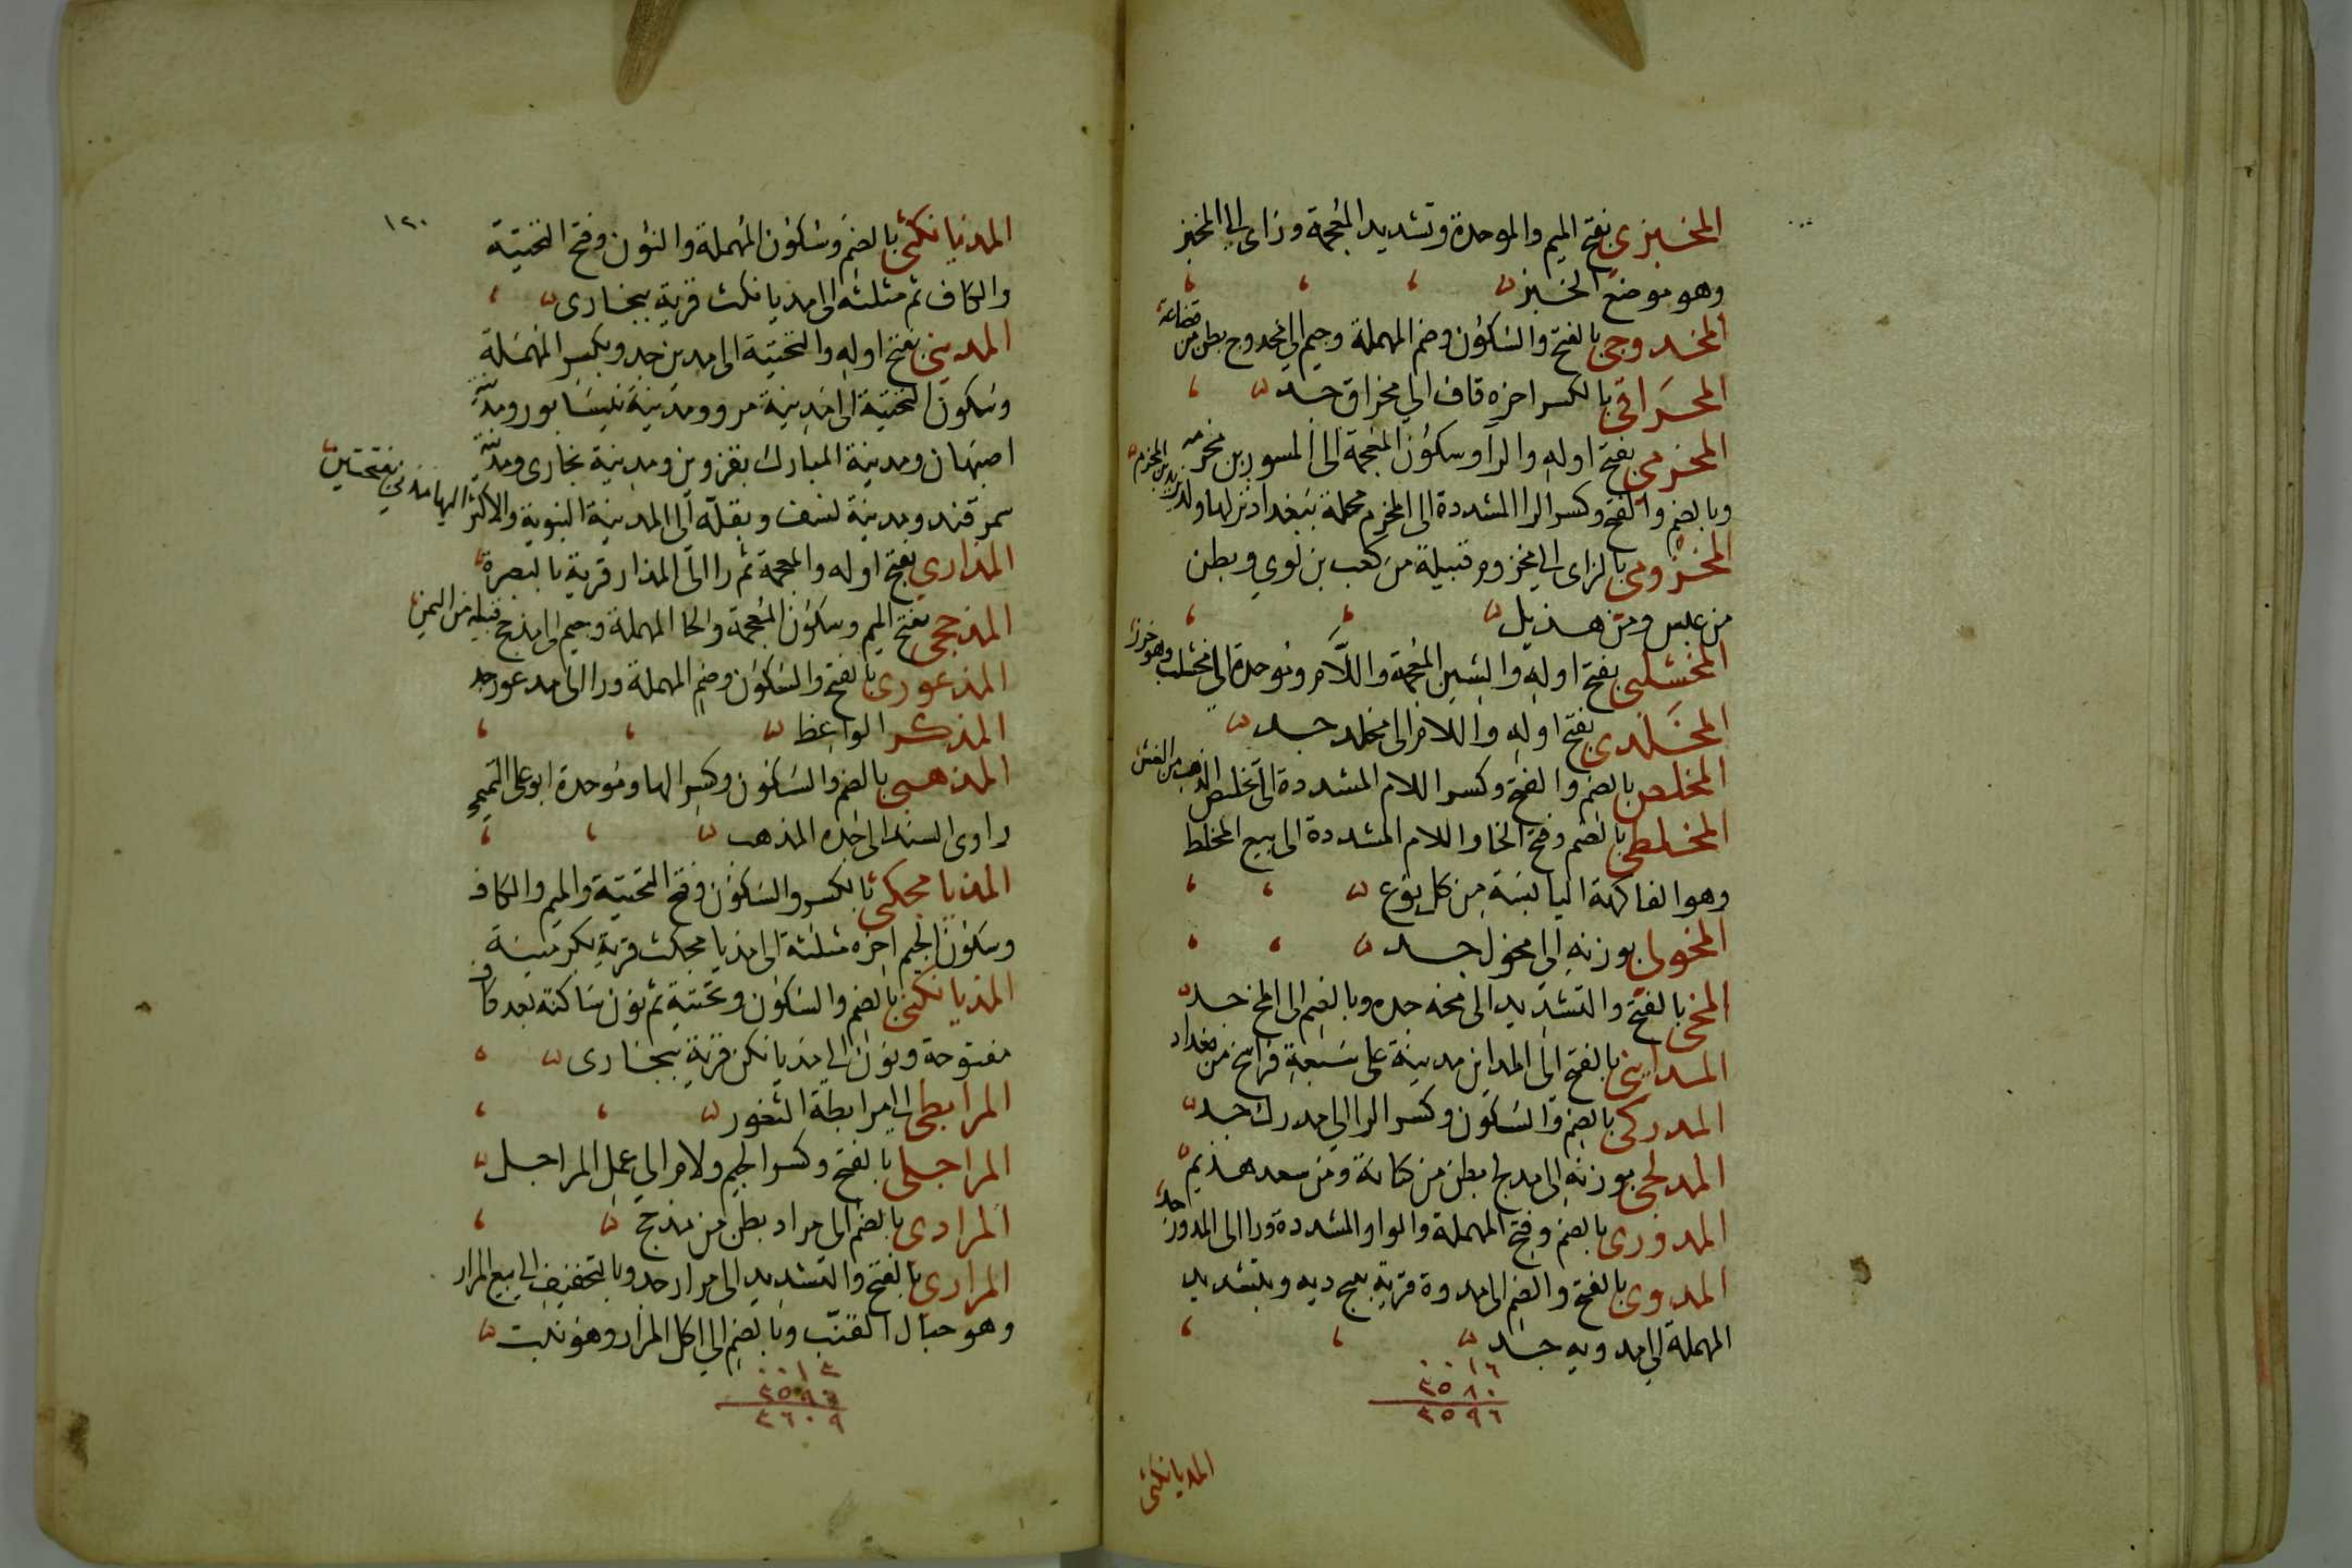 المخبزى بفتح الميم والموحدة وتشديد المعجمة وزاى الى المخبز
وهو موضع الخبز
المخدوجى بالفتح والسكون وضم المهملة وجيم الى مخدوج بطن من قضاعة
المخراقى بالكسر اخره قاف الى مخراق جد
المخرمى بفتح اوله والرا وسكون المعجمة الى المسور بن مخرمه
وبالضم والفتح وكسر الرا المشددة الى المخرم محلة ببغداد نزلها ولد يزيد بن المخرم
المخزومى بالزاى الى مخزوم قبيلة من كعب بن لوي وبطن
من عبس ومن هذيل
المخشلبى بفتح اوله والشين المعجمة واللام وموحدة الى مخشلب وهو خرز
المخلدى بفتح اوله واللام الى مخلد جد
المخلص بالضم والفتح وكسر اللام المشددة الى تخليص الذهب من الغش
المخلطى بالضم وفتح الخا واللام المشددة الى بيع المخلط
وهو الفاكهة اليابسة من كل نوع
المخولى بوزنه الى مخول جد
المخى بالفتح والتشديد الى مخه جده وبالضم الى المخ جد
المداينى بالفتح الى المداين مدينة على سبعة فراسخ من بغداد
المدركى بالضم والسكون وكسر الرا الى مدرك جد
المدلجى بوزنه الى مدلج بطن من كنانة ومن سعد هذيم
المدورى بالضم وفتح المهملة والواو المشددة ورا الى المدور جد
المدوى بالفتح والضم الى مدوة قرية بپنج ديه وبتشديد
المهملة الى مدويه جد
٠٠١٦
٣٥٨٠
٣٥٩٦
المديانكثى
١٢٠
المديانكثى بالضم وسكون المهملة والنون وفتح التحتية
والكاف ثم مثلثه الى مديانكث قرية ببخارى
المدينى بفتح اوله والتحتية الى مدين جد وبكسر المهملة
وسكون التحتية الى مدينة مرو ومدينة نيسابور ومدينة
اصبهان ومدينة المبارك بقزوين ومدينة بخارى ومدينة
سمرقند ومدينة نسف وبقلة الى المدينة النبوية والاكثر اليها مدني بفتحتين
المذارى بفتح اوله والمعجمة ثم را الى المذار قرية بالبصرة
المذحجى بفتح الميم وسكون المعجمة والحا المهملة وجيم الى مذحج قبيله من اليمن
المذعورى بالفتح والسكون وضم المهملة ورا الى مذعور جد
المذكر الواعظ
المذهبى بالضم والسكون وكسر الها وموحدة ابو على التميمى
راوى المسند الى جده المذهب
المذيامجكثى بالكسر والسكون وفتح التحتية والميم والكاف
وسكون الجيم اخره مثلثة الى مذيامجكث قرية بكرمينية
المذيانكنى بالضم والسكون وتحتية ثم نون ساكنة بعد كاف
مفتوحة ونون الى مذيانكن قرية ببخارى
المرابطى الى مرابطة الثغور
المراجلى بالفتح وكسر الجيم ولام الى عمل المراجل
المرادى بالضم الى مراد بطن من مذحج
المرارى بالفتح والتشديد الى مرار جد وبالتخفيف الى بيع المرار
وهو حبال القنب وبالضم الى اكل المرار وهو نبت
٠٠١٣
٣٥٩٦
٣٦٠٩